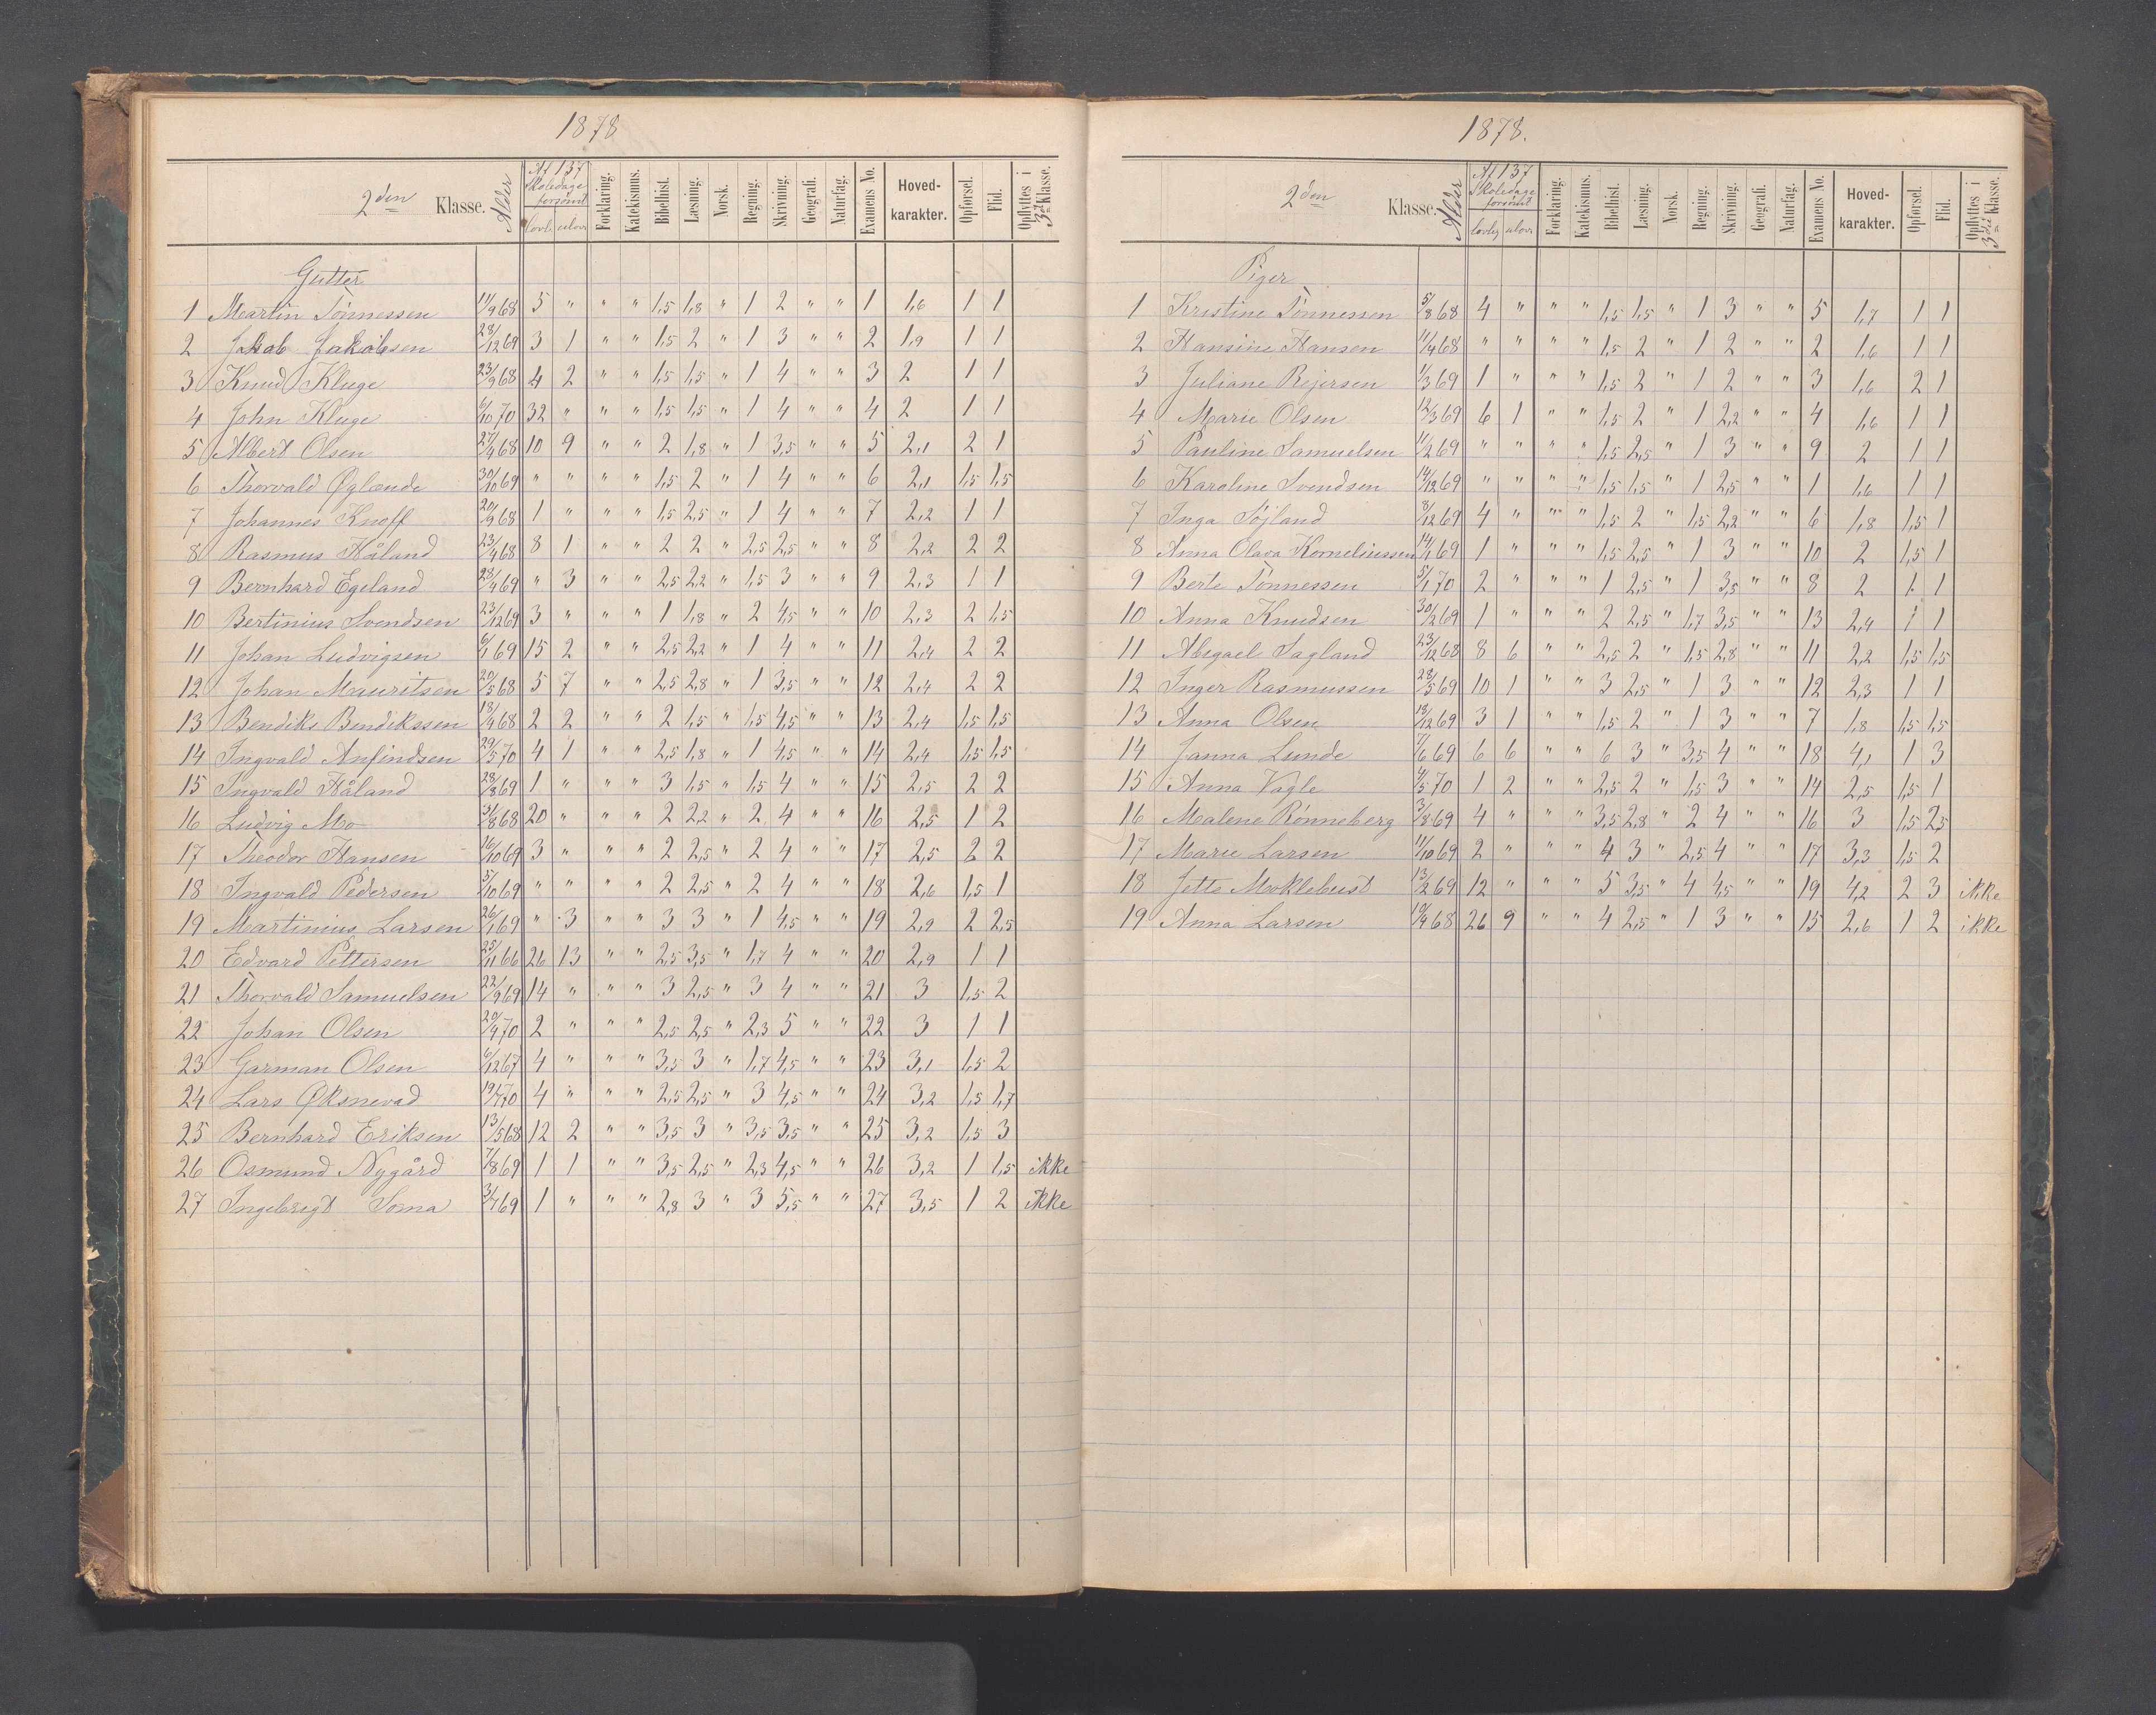 1878
2den Klasse. Alder Af 137 Skoledage forsømt lovl. ulovl. Forklaring. Katekismus. Bibelhist. Læsning. Norsk. Regning. Skrivning. Geografi. Naturfag. Examens No. Hoved-karakter. Opførsel. Flid. Opflyttes i 3die Klasse.
Gutter
1 Martin Tønnessen 11/9 68 5 " " " 1,5 1,8 " 1 2 " " 1 1,6 1 1
2 Jakob Jakobsen 28/12 69 3 1 " " 1,5 2 " 1 3 " " 2 1,9 1 1
3 Knud Kluge 23/9 68 4 2 " " 1,5 1,5 " 1 4 " " 3 2 1 1
4 John Kluge 6/10 70 32 " " " 1,5 1,5 " 1 4 " " 4 2 1 1
5 Albert Olsen 27/4 68 10 9 " " 2 1,8 " 1 3,5 " " 5 2,1 2 1
6 Thorvald Øglænde 30/10 69 " " " " 1,5 2 " 1 4 " " 6 2,1 1,5 1,5
7 Johannes Knoff 20/9 68 1 " " " 1,5 2,5 " 1 4 " " 7 2,2 1 1
8 Rasmus Håland 23/4 68 8 1 " " 2 2 " 2,5 2,5 " " 8 2,2 2 2
9 Bernhard Egeland 28/4 69 " 3 " " 2,5 2,2 " 1,5 3 " " 9 2,3 1 1
10 Bertinius Svendsen 23/12 69 3 " " " 1 1,8 " 2 4,5 " " 10 2,3 2 1,5
11 Johan Ludvigsen 6/1 69 15 2 " " 2,5 2,2 " 1 4 " " 11 2,4 2 2
12 Johan Mauritsen 20/5 68 5 7 " " 2,5 2,8 " 1 3,5 " " 12 2,4 2 2
13 Bendiks Bendikssen 18/4 68 2 2 " " 2 1,5 " 1,5 4,5 " " 13 2,4 1,5 1,5
14 Ingvald Anfindsen 29/5 70 4 1 " " 2,5 1,8 " 1 4,5 " " 14 2,4 1,5 1,5
15 Ingvald Håland 28/8 69 1 " " " 3 1,5 " 1,5 4 " " 15 2,5 2 2
16 Ludvig Mo 31/8 68 20 " " " 2 2,2 " 2 4 " " 16 2,5 1 2
17 Theodor Hansen 16/10 69 3 " " " 2 2,5 " 2 4 " " 17 2,5 2 2
18 Ingvald Pedersen 5/10 69 " " " " 2 2,5 " 2 4 " " 18 2,6 1,5 1
19 Martinius Larsen 26/1 69 " 3 " " 3 3 " 1 4,5 " " 19 2,9 2 2,5
20 Edvard Pettersen 25/11 66 26 13 " " 2,5 3,5 " 1,7 4 " " 20 2,9 1 1
21 Thorvald Samuelsen 22/9 69 14 " " " 3 2,5 " 3 4 " " 21 3 1,5 2
22 Johan Olsen 20/4 70 2 " " " 2,5 2,5 " 2,3 5 " " 22 3 1 1
23 Garman Olsen 6/12 67 4 " " " 3,5 3 " 1,7 4,5 " " 23 3,1 1,5 2
24 Lars Øksnevad 19/4 70 4 " " " 2,5 2,5 " 3 4,5 " " 24 3,2 1,5 1,7
25 Bernhard Eriksen 13/5 68 12 2 " " 3,5 3 " 3,5 3,5 " " 25 3,2 1,5 3
26 Osmund Nygård 7/8 69 1 1 " " 3,5 2,5 " 2,3 4,5 " " 26 3,2 1 1,5 ikke
27 Ingebrigt Soma 31/7 69 1 " " " 2,8 3 " 3 5,5 " " 27 3,5 1 2 ikke
1878.
2den Klasse. Alder Af 137 Skoledage forsømt lovlig ulovl. Forklaring. Katekismus. Bibelhist. Læsning. Norsk. Regning. Skrivning. Geografi. Naturfag. Examens No. Hoved-karakter. Opførsel. Flid. Opflyttes i 3die Klasse.
Piger
1 Kristine Tønnessen 5/8 68 4 " " " 1,5 1,5 " 1 3 " " 5 1,7 1 1
2 Hansine Hansen 11/4 68 " " " " 1,5 2 " 1 2 " " 2 1,6 1 1
3 Juliane Rejersen 1/3 69 1 " " " 1,5 2 " 1 2 " " 3 1,6 2 1
4 Marie Olsen 12/3 69 6 1 " " 1,5 2 " 1 2,2 " " 4 1,6 1 1
5 Pauline Samuelsen 11/2 69 " " " " 1,5 2,5 " 1 3 " " 9 2 1 1
6 Karoline Svendsen 14/12 69 " " " " 1,5 1,5 " 1 2,5 " " 1 1,6 1 1
7 Inga Søjland 8/12 69 4 " " " 1,5 2 " 1,5 2,2 " " 6 1,8 1,5 1
8 Anna Olava Korneliussen 14/1 69 1 " " " 1,5 2,5 " 1 3 " " 10 2 1,5 1
9 Berte Tønnessen 5/1 70 2 " " " 1 2,5 " 1 3,5 " " 8 2 1 1
10 Anna Knudsen 30/2 69 1 " " " 2 2,5 " 1,7 3,5 " " 13 2,4 1 1
11 Abigael Sagland 23/12 68 8 6 " " 2,5 2 " 1,5 2,8 " " 11 2,2 1,5 1,5
12 Inger Rasmussen 28/5 69 10 1 " " 3 2,5 " 1 3 " " 12 2,3 1 1
13 Anna Olsen 18/12 69 3 1 " " 1,5 2 " 1 3 " " 7 1,8 1,5 1,5
14 Janna Lunde 7/6 69 6 6 " " 6 3 " 3,5 4 " " 18 4,1 1 3
15 Anna Vagle 4/5 70 1 2 " " 2,5 2 " 1,5 3 " " 14 2,5 1,5 1
16 Malene Rønneberg 3/8 69 4 " " " 3,5 2,8 " 2 4 " " 16 3 1,5 2,5
17 Marie Larsen 11/10 69 2 " " " 4 3 " 2,5 4 " " 17 3,3 1,5 2
18 Jette Moklebust 13/2 69 12 " " " 5 3,5 " 4 4,5 " " 19 4,2 2 3 ikke
19 Anna Larsen 10/4 68 26 9 " " 4 2,5 " 1 3 " " 15 2,6 1 2 ikke